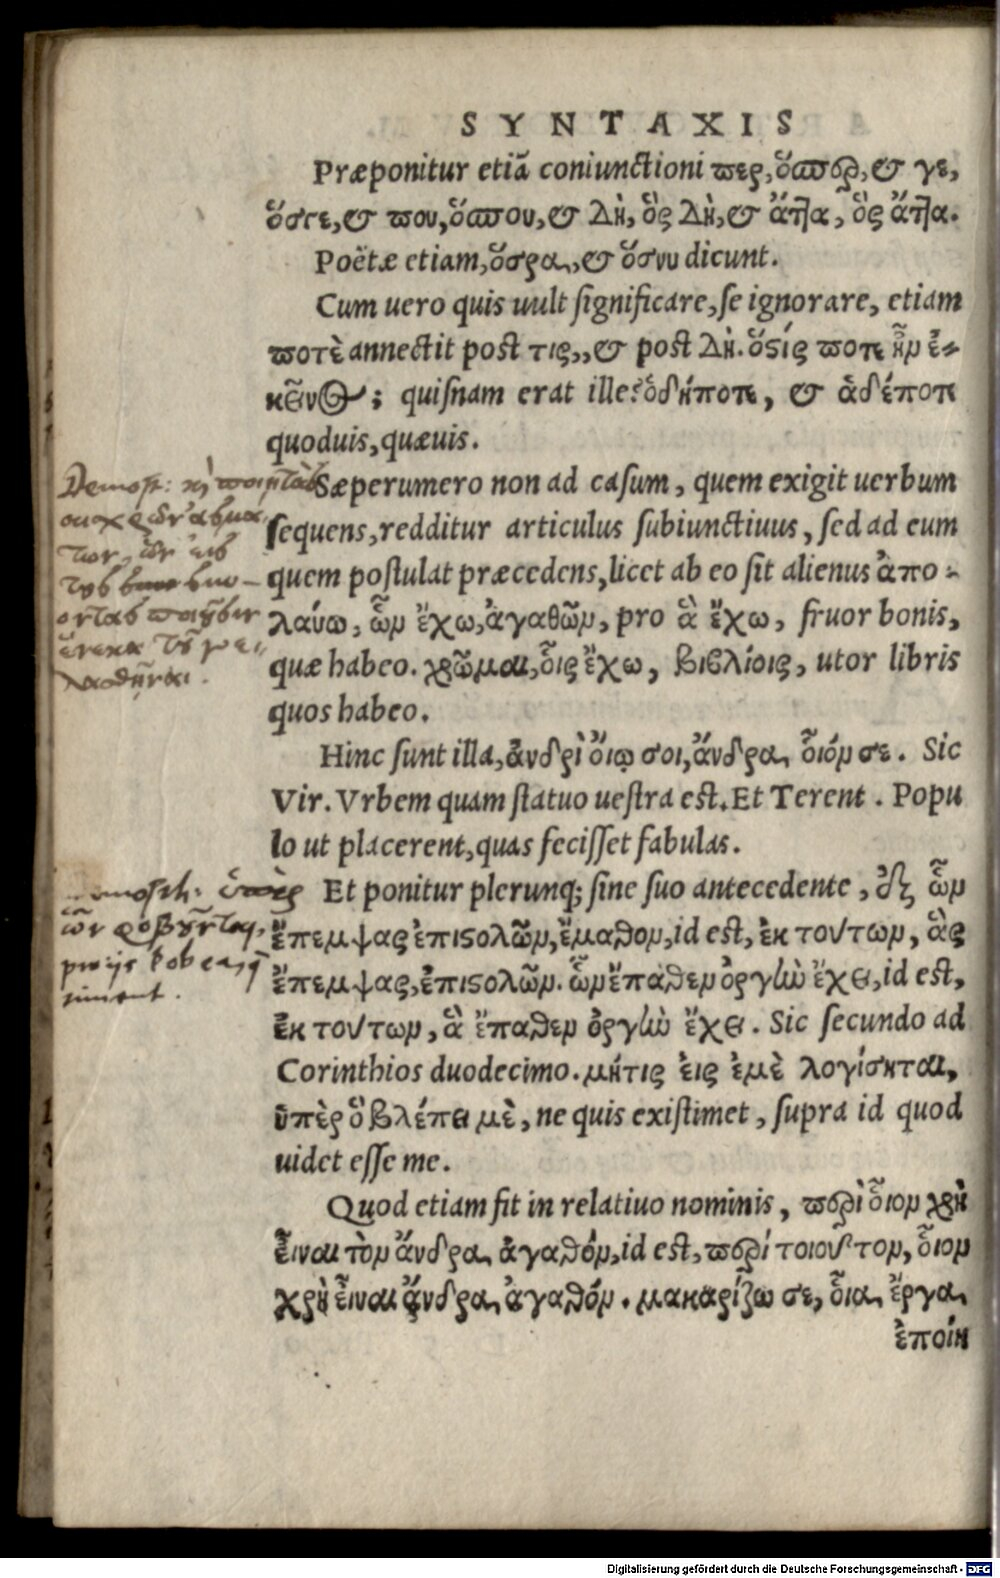 SYNTAXIS
Præponitur etiã coniunctioni περ, ὅπερ, & γε,
ὅσγε, & που, ὅπου, & δὴ, ὃς δὴ, & ἄττα, ὃς ἄττα.
Poëtæ etiam, ὅσρα, & ὅσνυ dicunt.
Cum uero quis uult ſignificare, ſe ignorare, etiam
ποτὲ annectit poſt τις,, & poſt δὴ. ὅστίς ποτε ἦν ἐ-
κεῖνος; quiſnam erat ille? ὁδήποτε, & ἁδέποτε
quoduis, quæuis.
Sæpe rumero non ad caſum, quem exigit uerbum
ſequens, redditur articulus ſubiunctiuus, ſed ad eum
quem poſtulat præcedens, licet ab eo ſit alienus ἀπο-
λαύω, ὧν ἔχω, ἀγαθῶν, pro ἃ ἔχω, fruor bonis,
quæ habeo. χρῶμαι, οἷς ἔχω, βιβλίοις, utor libris
quos habeo.
Hinc ſunt illa, ἀνδρὶ ὅιῳ σοι, ἄνδρα, οἷόν σε. Sic
Vir. Vrbem quam ſtatuo ueſtra eſt. Et Terent. Popu
lo ut placerent, quas feciſſet fabulas.
Et ponitur plerunq; ſine ſuo antecedente, ἐξ ὧν
ἔπεμψας ἐπιστολῶν, ἔμαθον, id eſt, ἐκ τούτων, ἃς
ἔπεμψας, ἐπιστολῶν. ὧν ἔπαθεν ὀργὴν ἔχει, id eſt,
ἐκ τούτων, ἃ ἔπαθεν ὀργὴν ἔχει. Sic ſecundo ad
Corinthios duodecimo. μήτις εἰς ἐμὲ λογίσηται,
ὑπὲρ ὃ βλέπει μὲ, ne quis exiſtimet, ſupra id quod
uidet eſſe me.
Quod etiam fit in relatiuo nominis, περὶ οἷον χρὴ
εἶναι τὸν ἄνδρα ἀγαθόν, id eſt, περί τοιοῦτον, οἷον
χρὴ εἶναι ἄνδρα ἀγαθόν. μακαρίζω σε, οἷα ἔργα
ἐποίη
Demosth: ὑπὲρ
ὧν φοβοῦνται,
Digitalisierung gefördert durch die Deutsche Forschungsgemeinschaft - DFG